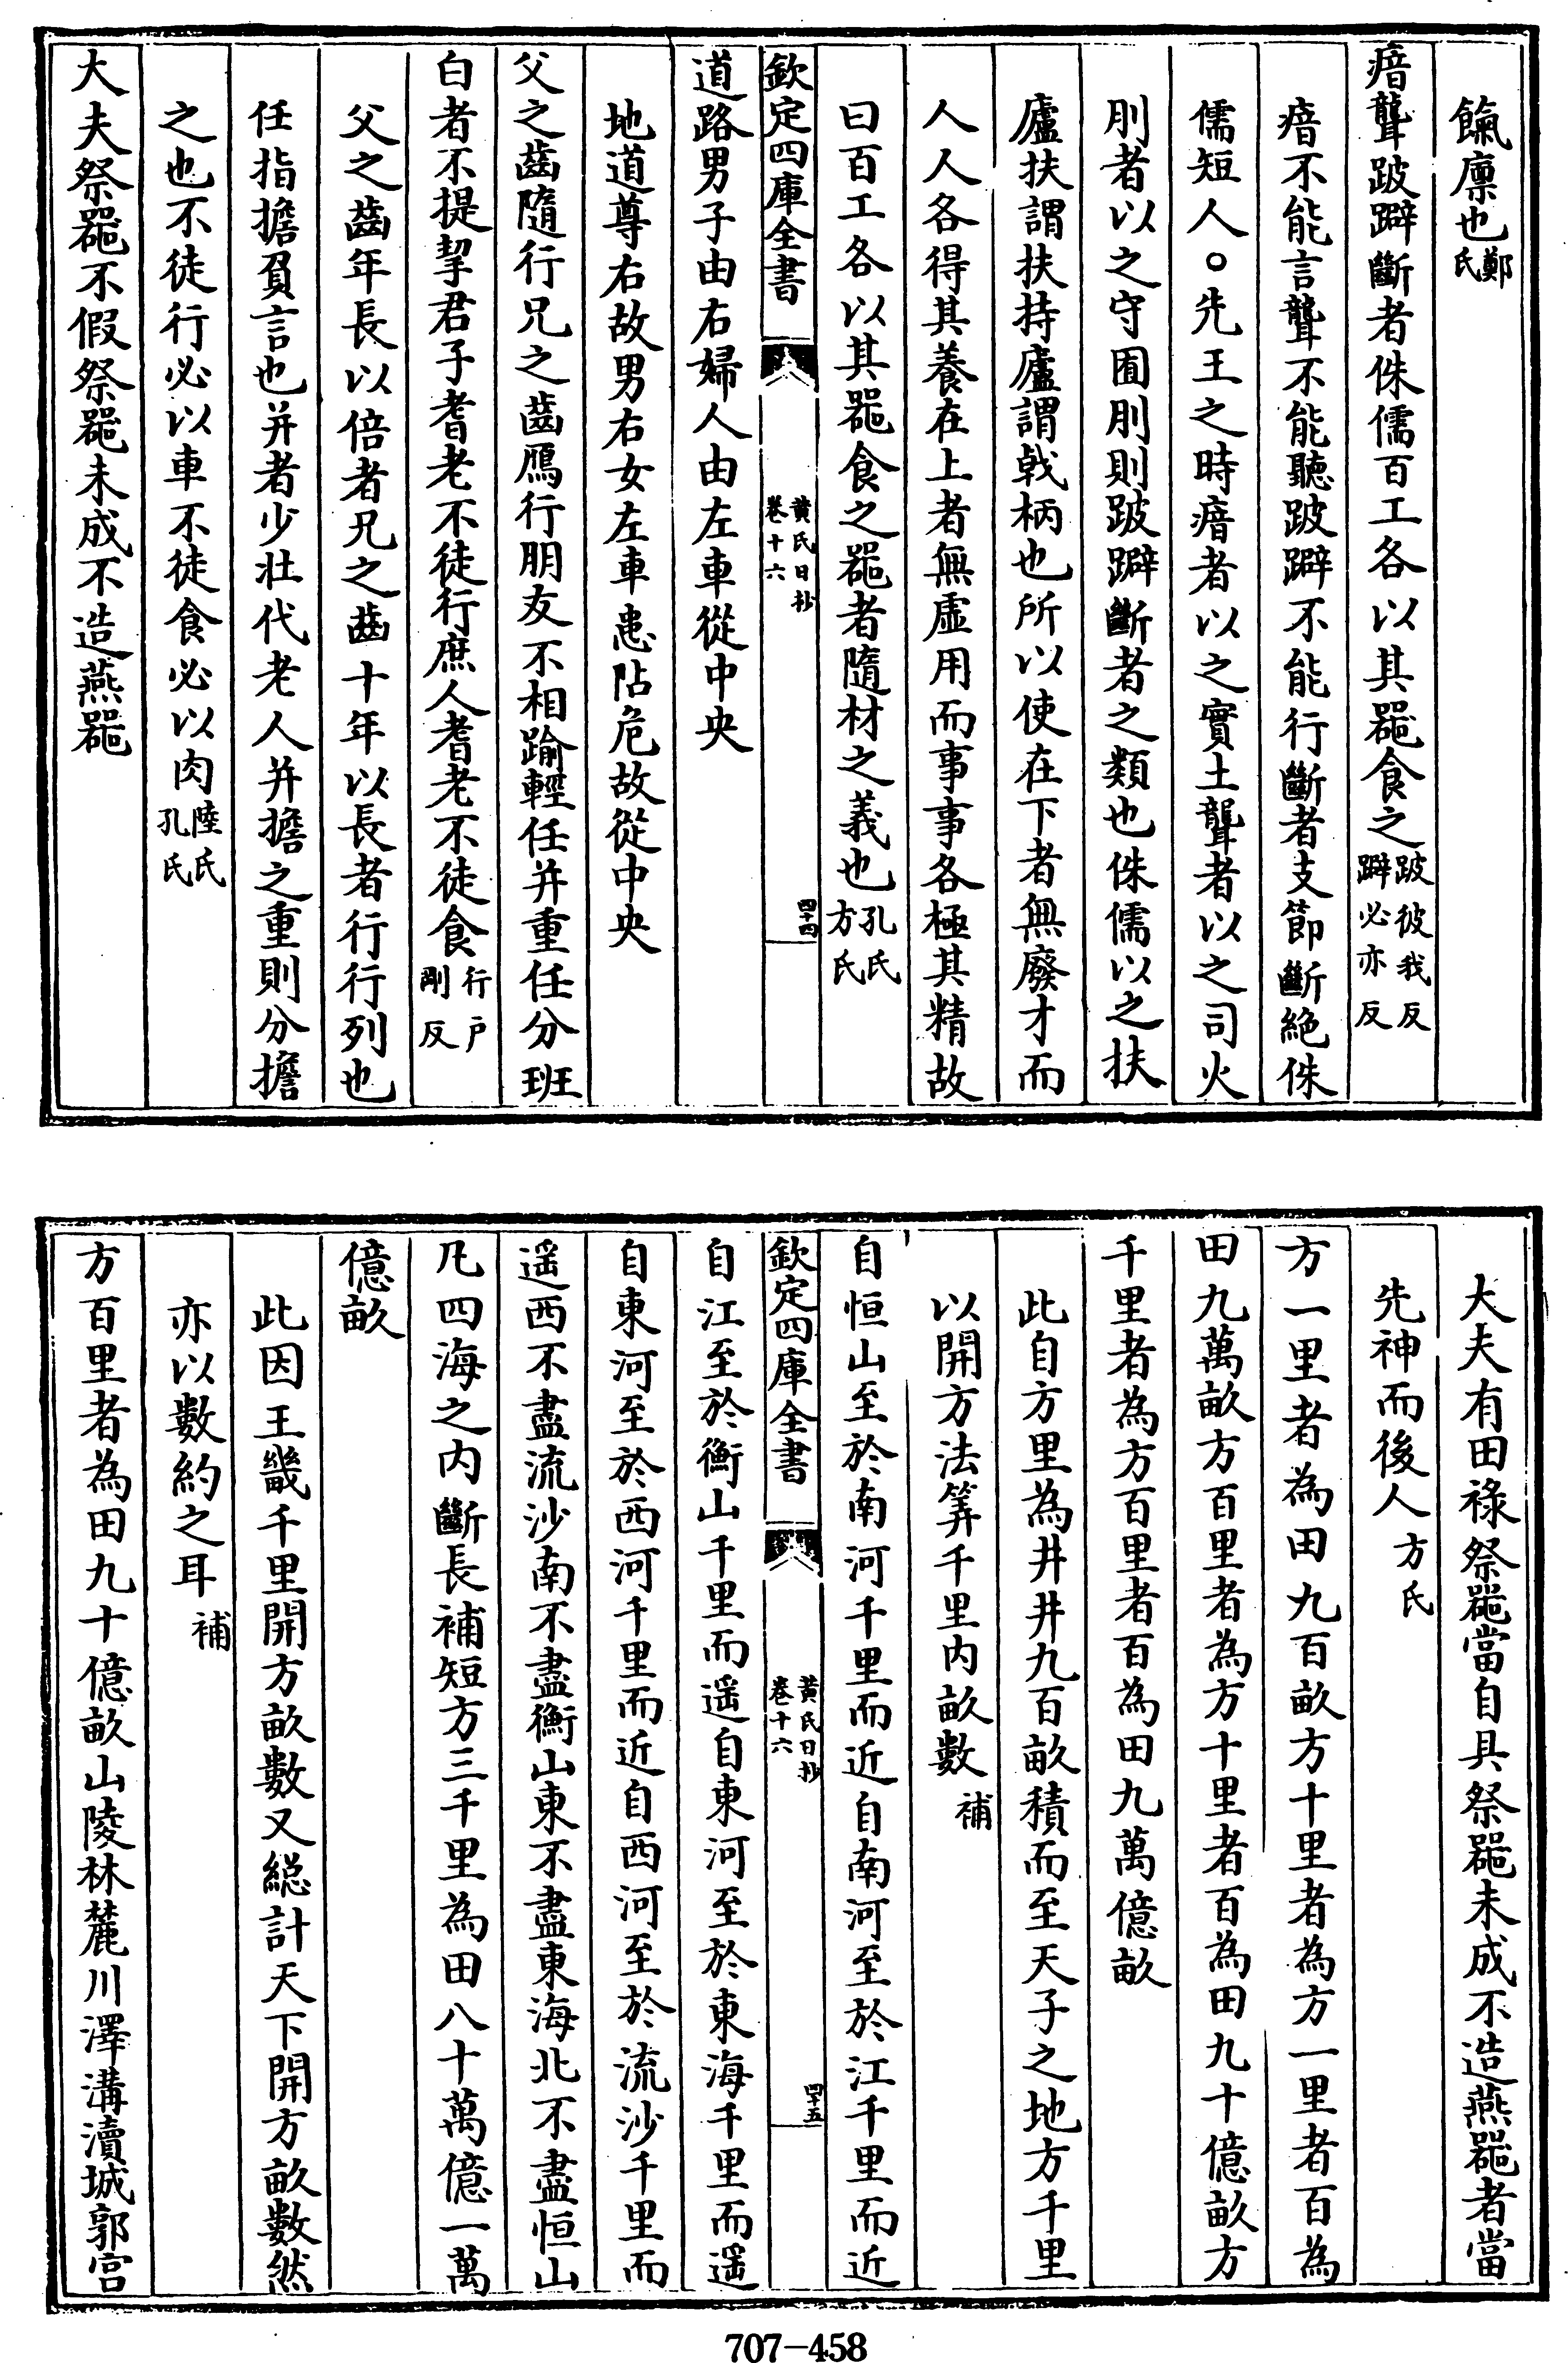 餼廪也鄭氏
瘖聾跛躃斷者侏儒百工各以其器食之跛彼我反躃必亦反
瘖不能言聾不能聽跛躃不能行斷者支節斷絶侏
儒短人○先王之時瘖者以之實土聾者以之司火
刖者以之守囿刖則跛躃斷者之類也侏儒以之扶
廬扶謂扶持廬謂戟柄也所以使在下者無廢才而
人人各得其養在上者無虛用而事事各極其精故
曰百工各以其器食之器者隨材之義也孔氏方氏
欽定四庫全書
黄氏日抄
卷十六
四十四
道路男子由右婦人由左車從中央
地道尊右故男右女左車患阽危故從中央
父之齒隨行兄之齒鴈行朋友不相踰輕任并重任分班
白者不提挈君子耆老不徒行庶人耆老不徒食行户剛反
父之齒年長以倍者兄之齒十年以長者行行列也
任指擔負言也并者少壮代老人并擔之重則分擔
之也不徒行必以車不徒食必以肉陸氏孔氏
大夫祭器不假祭器未成不造燕器
大夫有田祿祭器當自具祭器未成不造燕器者當
先神而後人方氏
方一里者為田九百畝方十里者為方一里者百為
田九萬畝方百里者為方十里者百為田九十億畝方
千里者為方百里者百為田九萬億畝
此自方里為井井九百畝積而至天子之地方千里
以開方法筭千里内畝數補
自恒山至於南河千里而近自南河至於江千里而近
欽定四庫全書
黄氏日抄
卷十六
四十五
自江至於衡山千里而遥自東河至於東海千里而遥
自東河至於西河千里而近自西河至於流沙千里而
遥西不盡流沙南不盡衡山東不盡東海北不盡恒山
凡四海之内斷長補短方三千里為田八十萬億一萬
億畝
此因王畿千里開方畝數又総計天下開方畝數然
亦以數約之耳補
方百里者為田九十億畝山陵林麓川澤溝瀆城郭宫
707-458